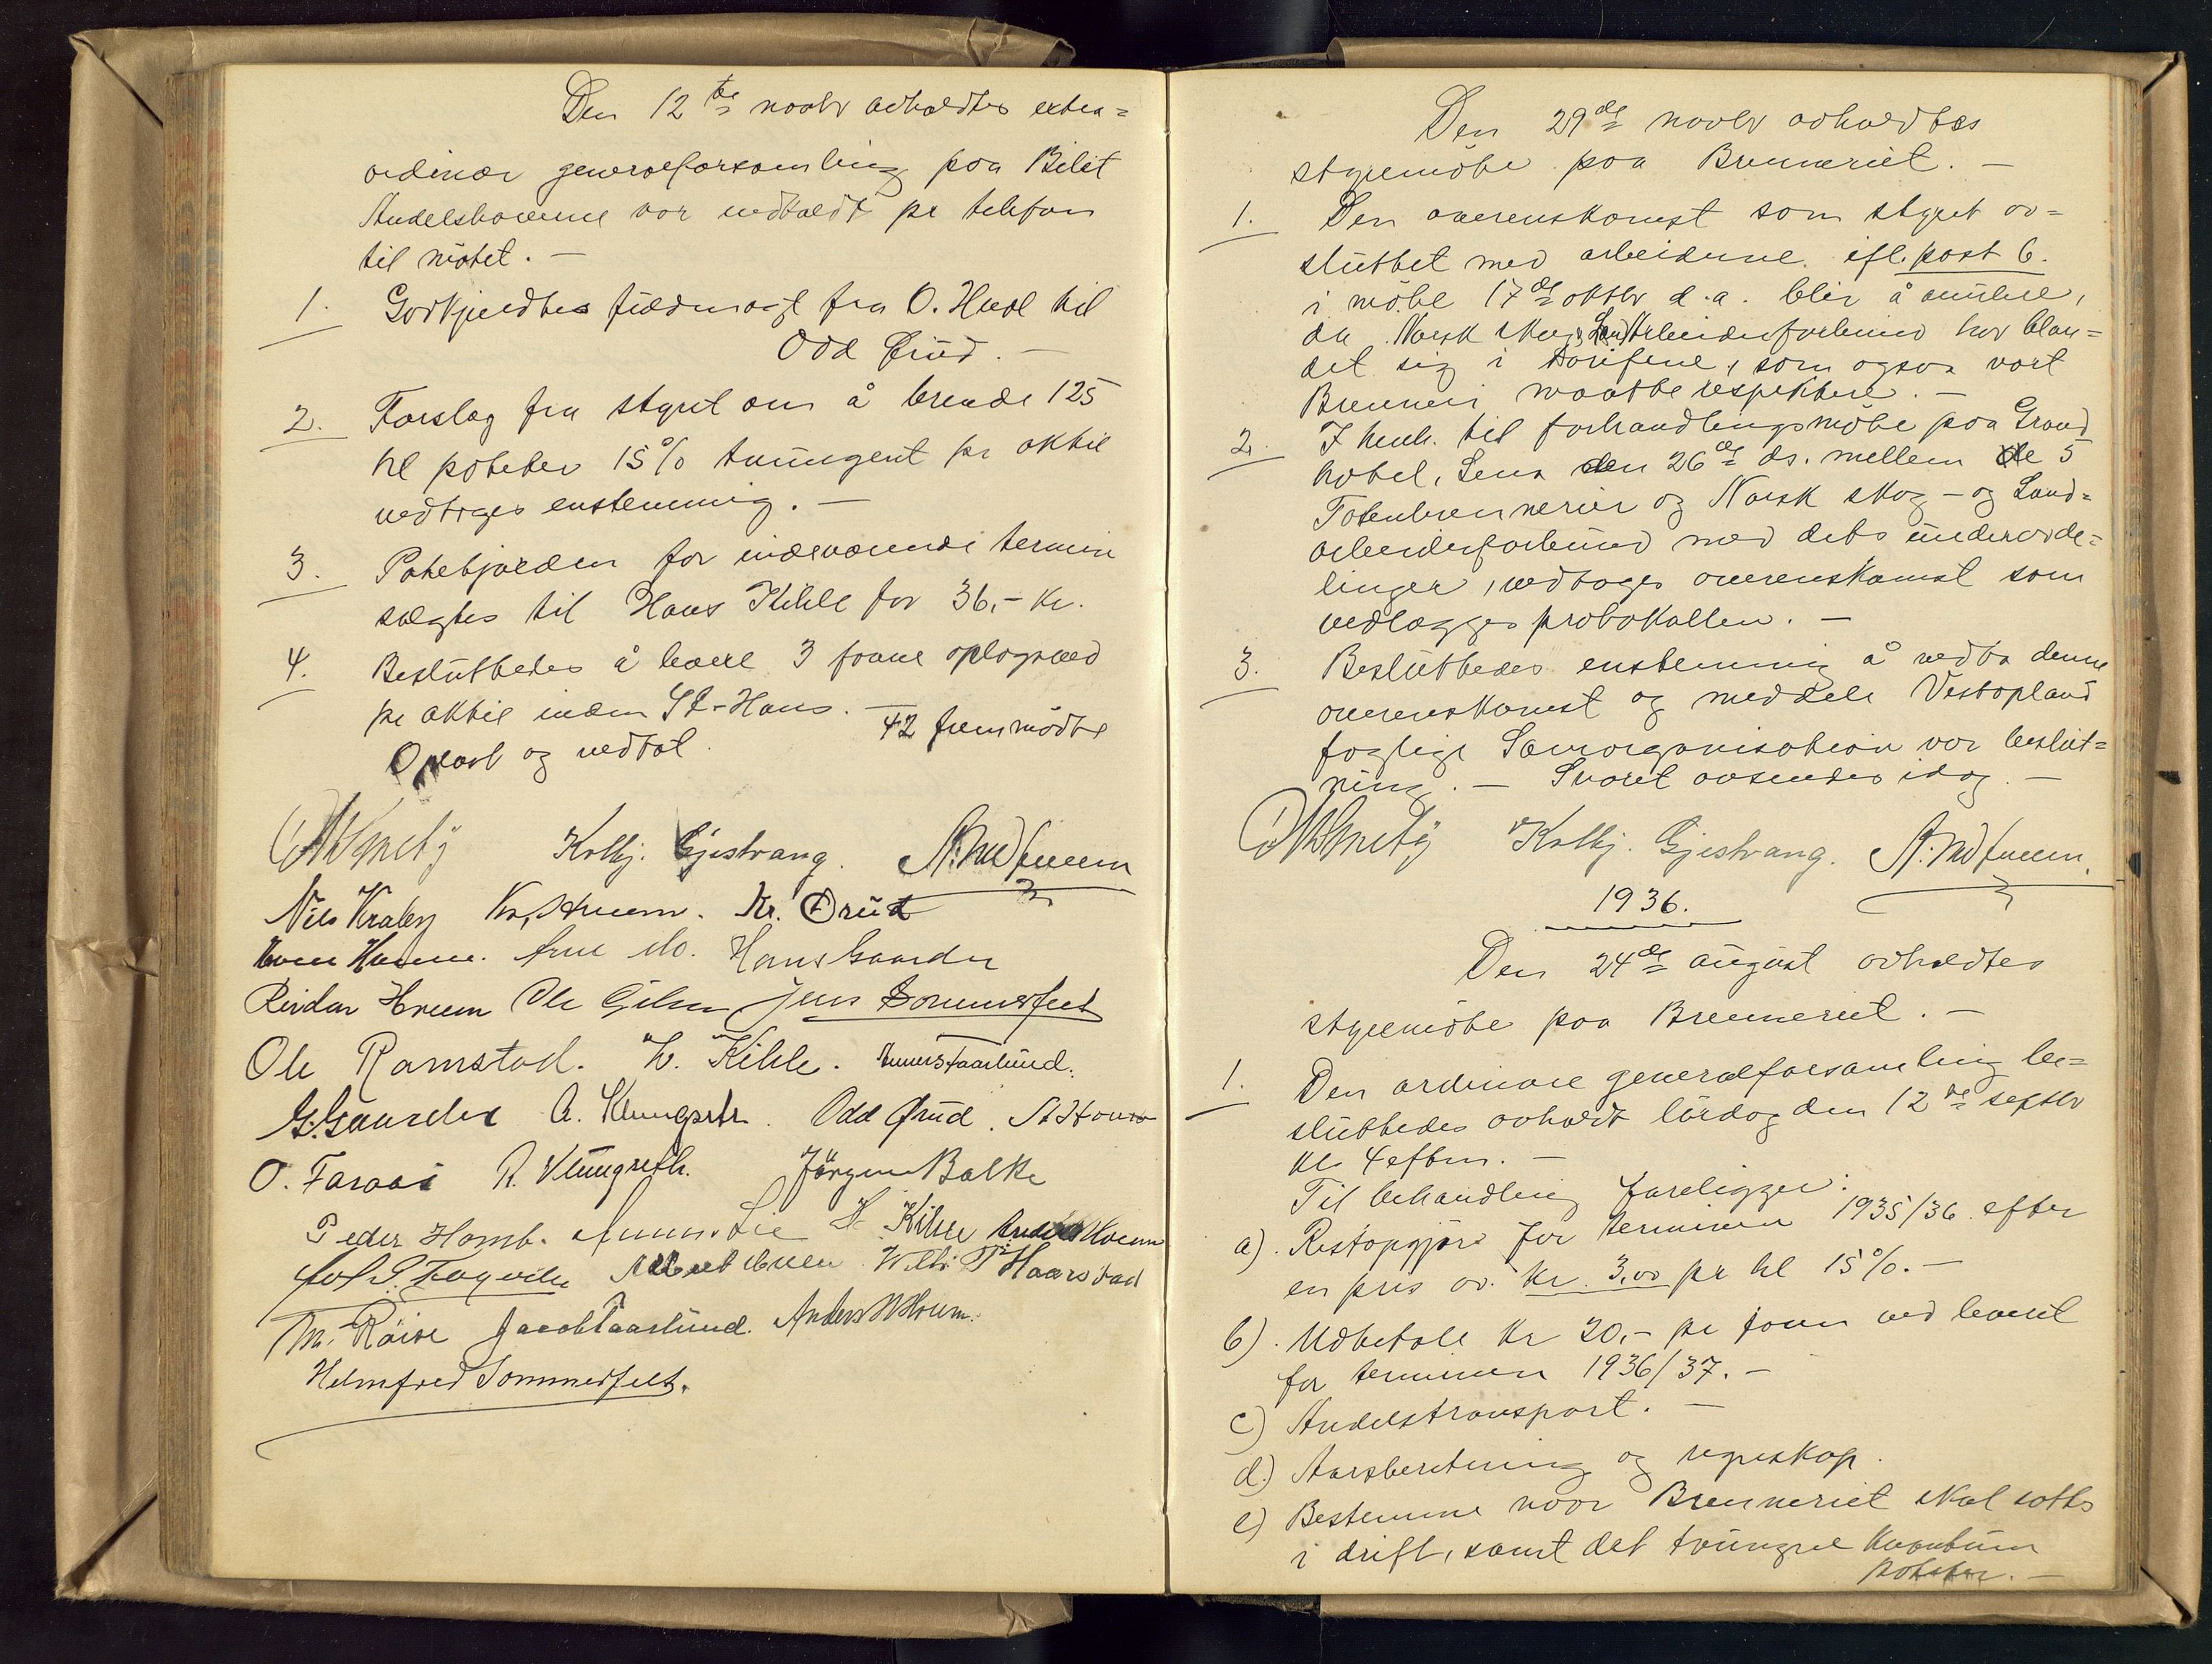 Den 12te novbr avholdtes extra=
ordinær generalforsamling paa Bilit
Andelshaverne var indkaldt pr telefon
til mötet. —
1. Godkjendtes fuldmagt fra O. Hveel til
Odd Crüd. —
2. Forslag fra styret om å brende 125
hl poteter 15% tvungent pr aktie
vedtoges enstemmig. —
3. Potetjorden for indeværende termin
solgtes til Hans Kihle for 36,- kr.
4. Besluttedes å levere 3 favne oplagsved
pr aktie inden St-Hans. —
42 fremmödte
Oplæst og vedtat.
Kolbj. Gjestvang.
Nils Kraby Kr. Drüd
Arne Mo. Hans Gaarder
Reidar Hveem Ole Jens Sommerfelt
Ole Ramstad. H. Kihle. Taarlund.
G. Gaarder A. Klungseth. Odd Crüd.
O. Faraas R. Klungseth. Jörgen Balke
Peder Homb. Lie H. Kihle Anders Hveem
Haarstad
M. Röise Jacob Taarlund. Anders Hveem.
Helmfred Sommerfelt.
Den 29de novbr avholdtes
styremöte paa Brenneriet. —
1. Den overenskomst som styret av=
sluttet med arbeiderne ifl. post 6.
i möte 17de oktbr d.a. blir å anulere,
da Norsk skog & Land Arbeiderforbund har blan=
det sig i tarifene, som ogsaa vort
Brenneri maatte respektere. —
2. I henh. til forhandlingsmöte paa Grand
hotel, Lena den 26de ds. mellem de 5
Totenbrennerier og Norsk skog - og Land=
arbeiderforbund med dets underavde=
linger, vedtoges overenskomst som
vedlægges protokollen. —
3. Besluttedes enstemmig å vedta denne
overenskomst og meddele Vestopland
faglige Samorganisation vor beslut=
ning. — Svaret avsendes idag. —
Kolbj. Gjestvang.
1936.
Den 24de august avholdtes
styremöte paa Brenneriet. —
1. Den ordinære generalforsamling be=
sluttedes avholdt lördag den 12te septbr
kl. 4 eftm. —
Til behandling foreligger:
a). Restopgjör for terminen 1935/36 efter
en pris av kr. 3,00 pr hl 15%. —
b). Udbetale kr 20,- pr favn ved levert
for terminen 1936/37. —
c) Andelstransport. —
d.) Aarsberetning og regnskap.
e) Bestemme naar Brenneriet skal sættes
i drift, samt det tvungne kvantum
poteter. —